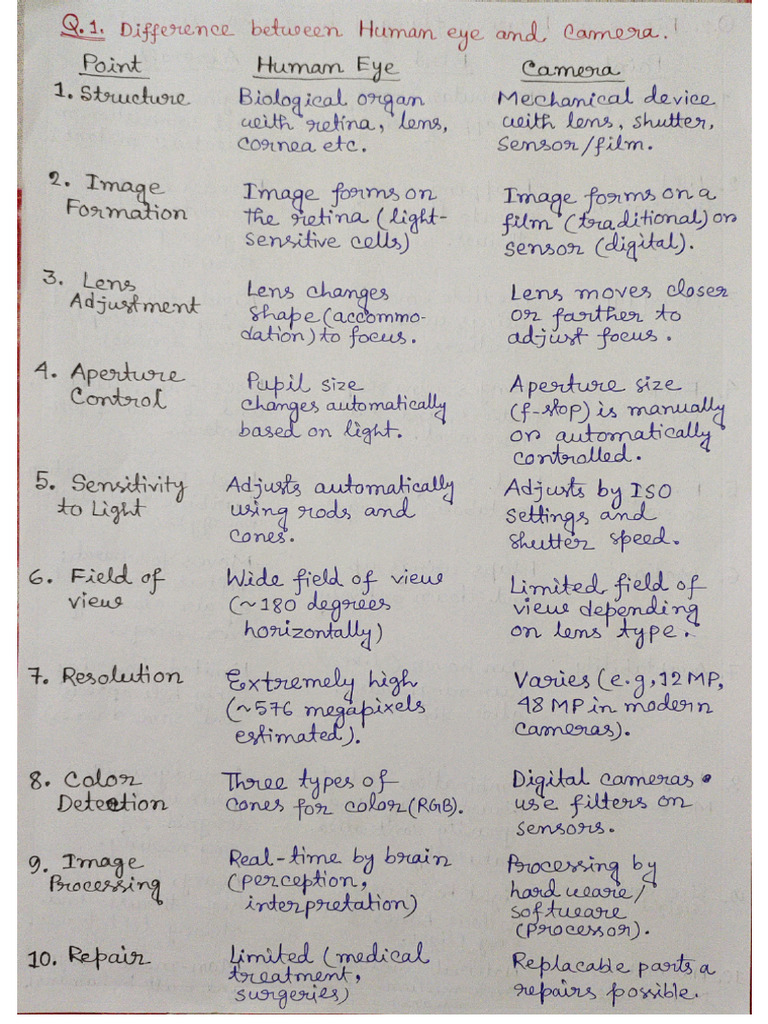 Q.1. Difference between Human eye and Camera.
Point Human Eye Camera
1. Structure Biological organ Mechanical device
with retina, lens, with lens, shutter,
cornea etc. sensor/film.
2. Image Image forms on Image forms on a
Formation the retina (light- film (traditional) or
sensitive cells) sensor (digital).
3. Lens Lens changes Lens moves closer
Adjustment shape (accommo- or farther to
dation) to focus. adjust focus.
4. Aperture Pupil size Aperture size
Control changes automatically (f-stop) is manually
based on light. or automatically
controlled.
5. Sensitivity Adjusts automatically Adjusts by ISO
to Light using rods and settings and
cones. shutter speed.
6. Field of Wide field of view Limited field of
view (~180 degrees view depending
horizontally) on lens type.
7. Resolution Extremely high Varies (e.g, 12 MP,
(~576 megapixels 48 MP in modern
estimated). cameras).
8. Color Three types of Digital cameras
Detection cones for color (RGB). use filters on
sensors.
9. Image Real-time by brain Processing by
Processing (perception, hardware/
interpretation) software
(Processor).
10. Repair Limited (medical Replacable parts a
treatment, repairs possible.
surgeries)